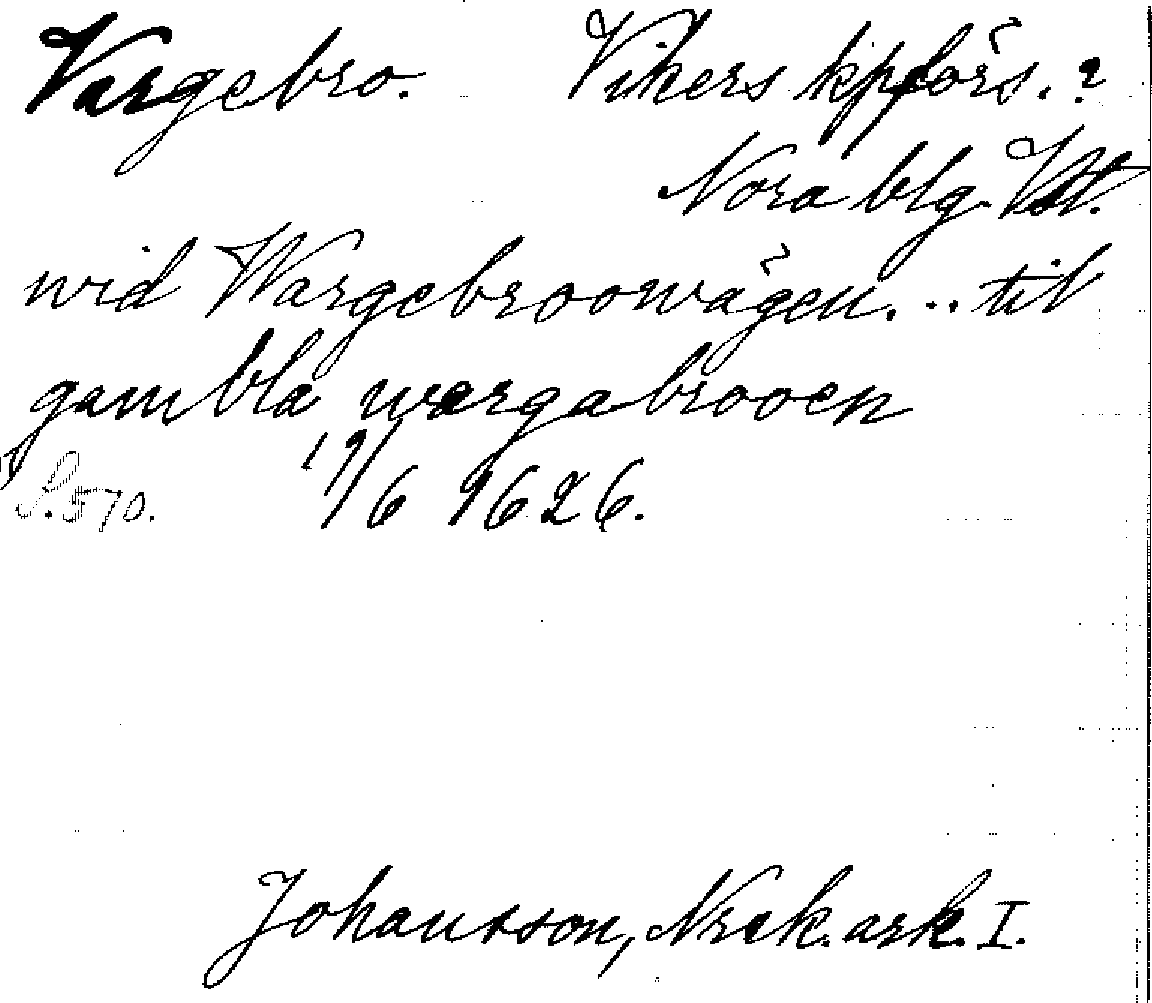 Vargebro. Vikers kpförs. ?
Nora blg. Vstl.
wid Wargebroowägen... til
gambla wargabrooen
S. 570. 19/6 1626.
Johansson, Nrak. ark. I.